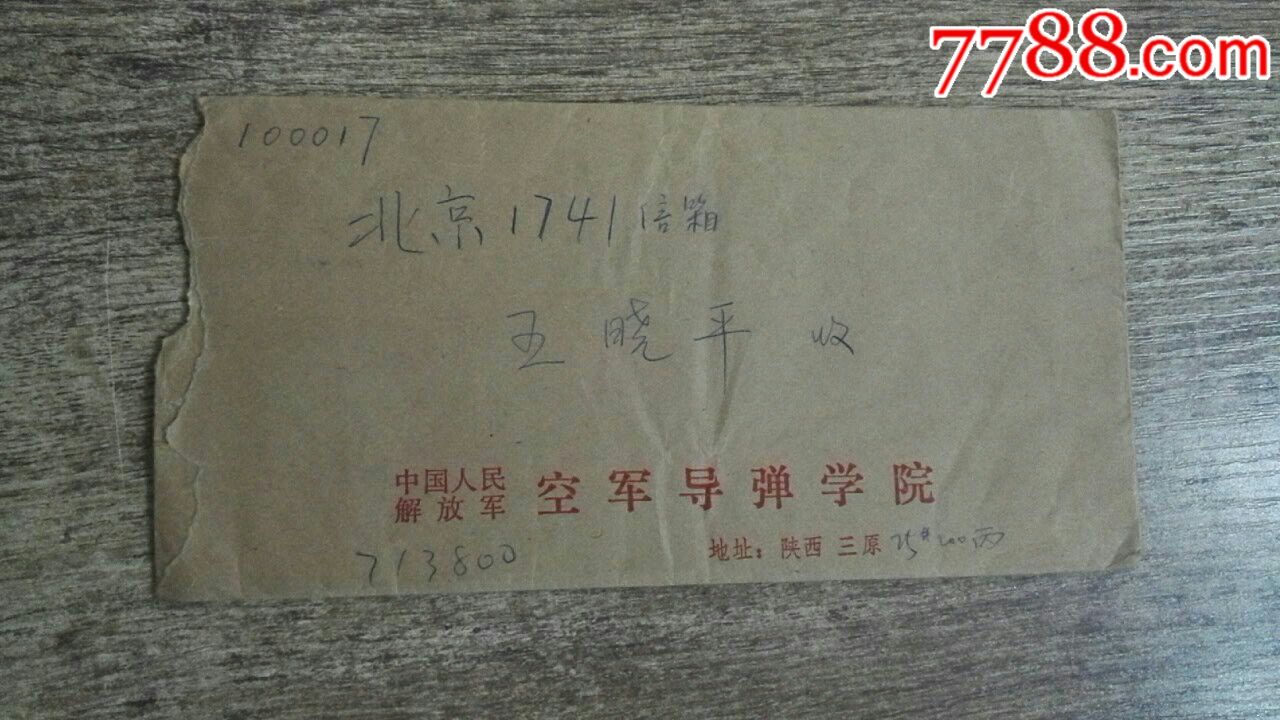 7788.com
100017
北京1741信箱
王晓平 收
中国人民
解放军
空军导弹学院
地址：陕西 三原 25# 200丙
713800